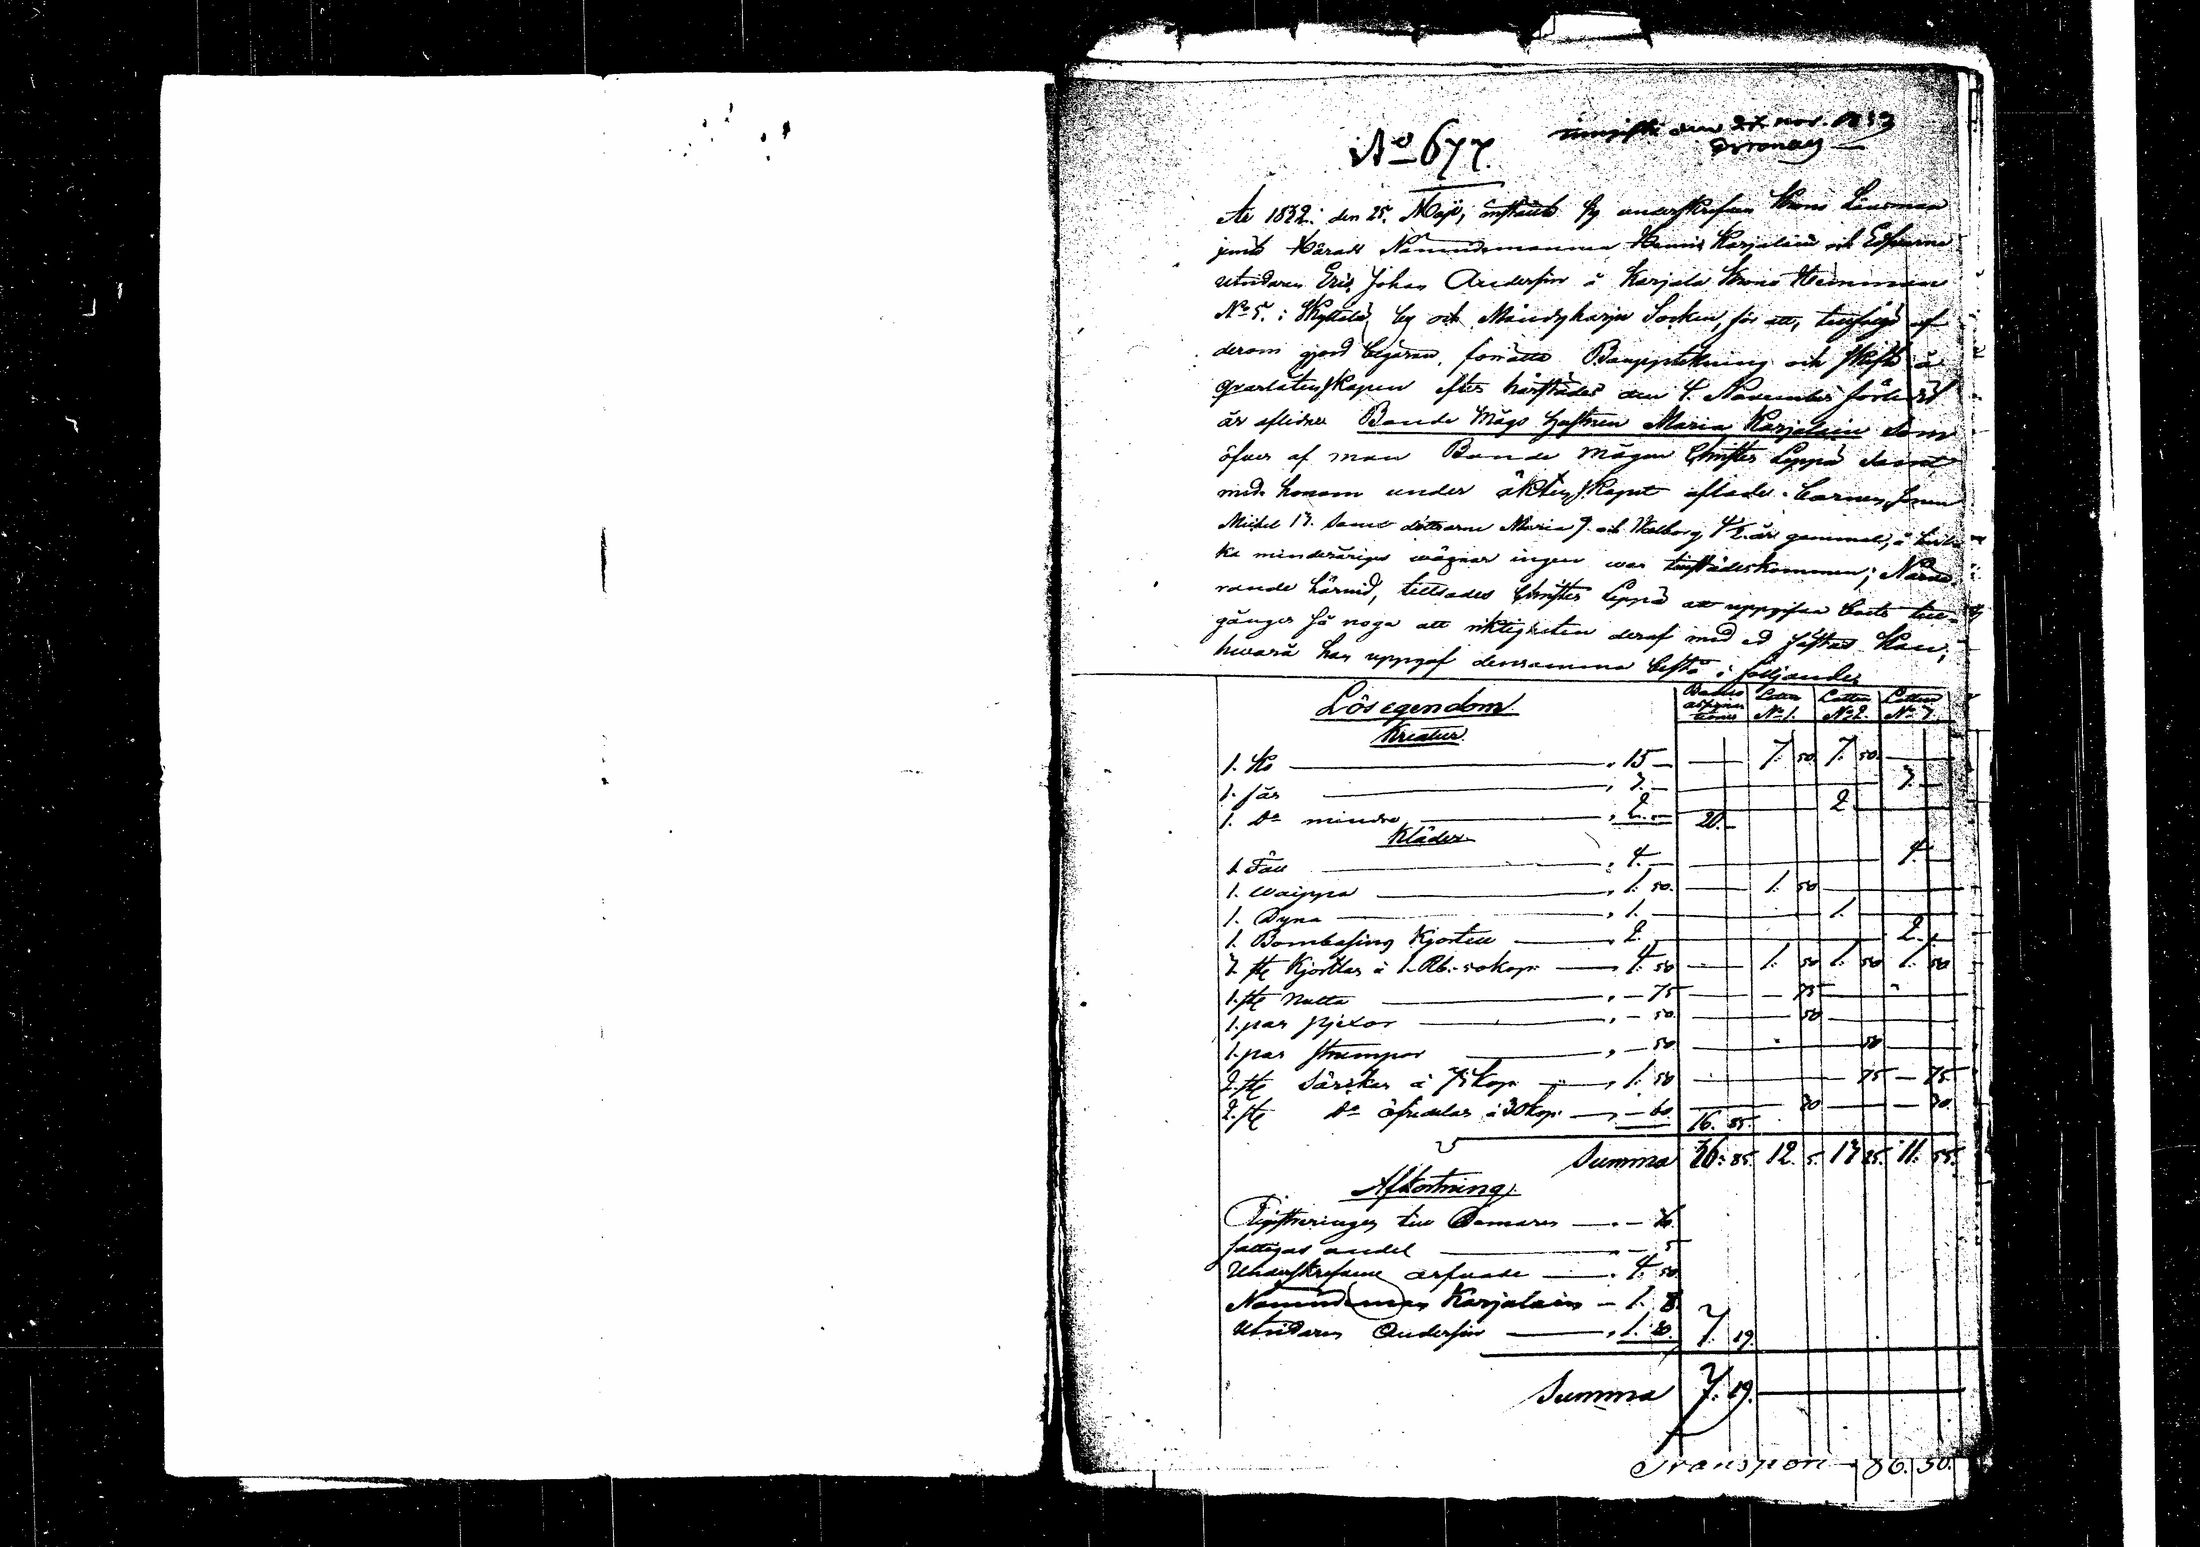 No 677.
den 27 nov. 1833
År 1832. den 25. Maji, instälte sig underskrifven Krono Länsman
jemte Härads Nämndemannen Hemric Karjalain och Edsvurne
Utridaren Eric Johan Anderssin å Karjala Krono Hemman
No 5. i Kyttälä by och Mändyharju Socken, för att, tillfölje af
derom gjord begäran, förrätta Bouppteckning och skifte å
qvarlåtenskapen efter härstädes den 4. November förledit
år aflidne Bonde Mågs hustrun Maria Karjalain som
öfver af man Bonde Mågen Christer Leppä samt
med honom under äktenskapet aflade barnen, sonen
Michel 13. samt döttrarne Maria 9. och Walborg 4½ år gammal, å hvil-
ka minderåriges vägnar ingen war tillstädeskommen; Närva-
rande härvid, tillsades Christer Leppä att uppgifva boets till-
gångar så noga att riktigheten deraf med ed fästas kan;
hvarå han uppgaf densamma bestå i följande
Lösegendom. Boets No 1. Lotten No 2. Lotten No 3.
Kreatur.
1. Ko " 15 — 7. 50. 7. 50.
1. får " 3. — 3. —
1. Do mindre " 2. — 20. — 2
Kläder
1. Fäll " 4. — 4
1. Waippa " 1. 50. 1. 50
1. Dyna " 1. 1.
1. Bombasins Kjortell " 2. 2.
3. st Kjortlar á 1. Rb. 50 kop. 4. 50 1. 50 1. 50 1. 50
1. st Nutta " — 75 — 75
1. par pjexor " — 50. 50
1. par strumpor " — 50 50
2. st Särckar á 75 kop. " 1. 50 75 — 75.
2. st Do öfredelar á 30 kop. — 60. 16. 85. 30 — 30.
Summa 36. 85. 12. 5. 13 25. 11. 55.
Afkortning.
till Domaren — 36.
fattigas andel — 5
Underskrefvene arfvode 4. 50.
Nämndeman Karjalain — 1. 8.
Utridaren Anderssin " 1. 20. 7. 19.
Summa 7. 19.
Transport 86. 50.